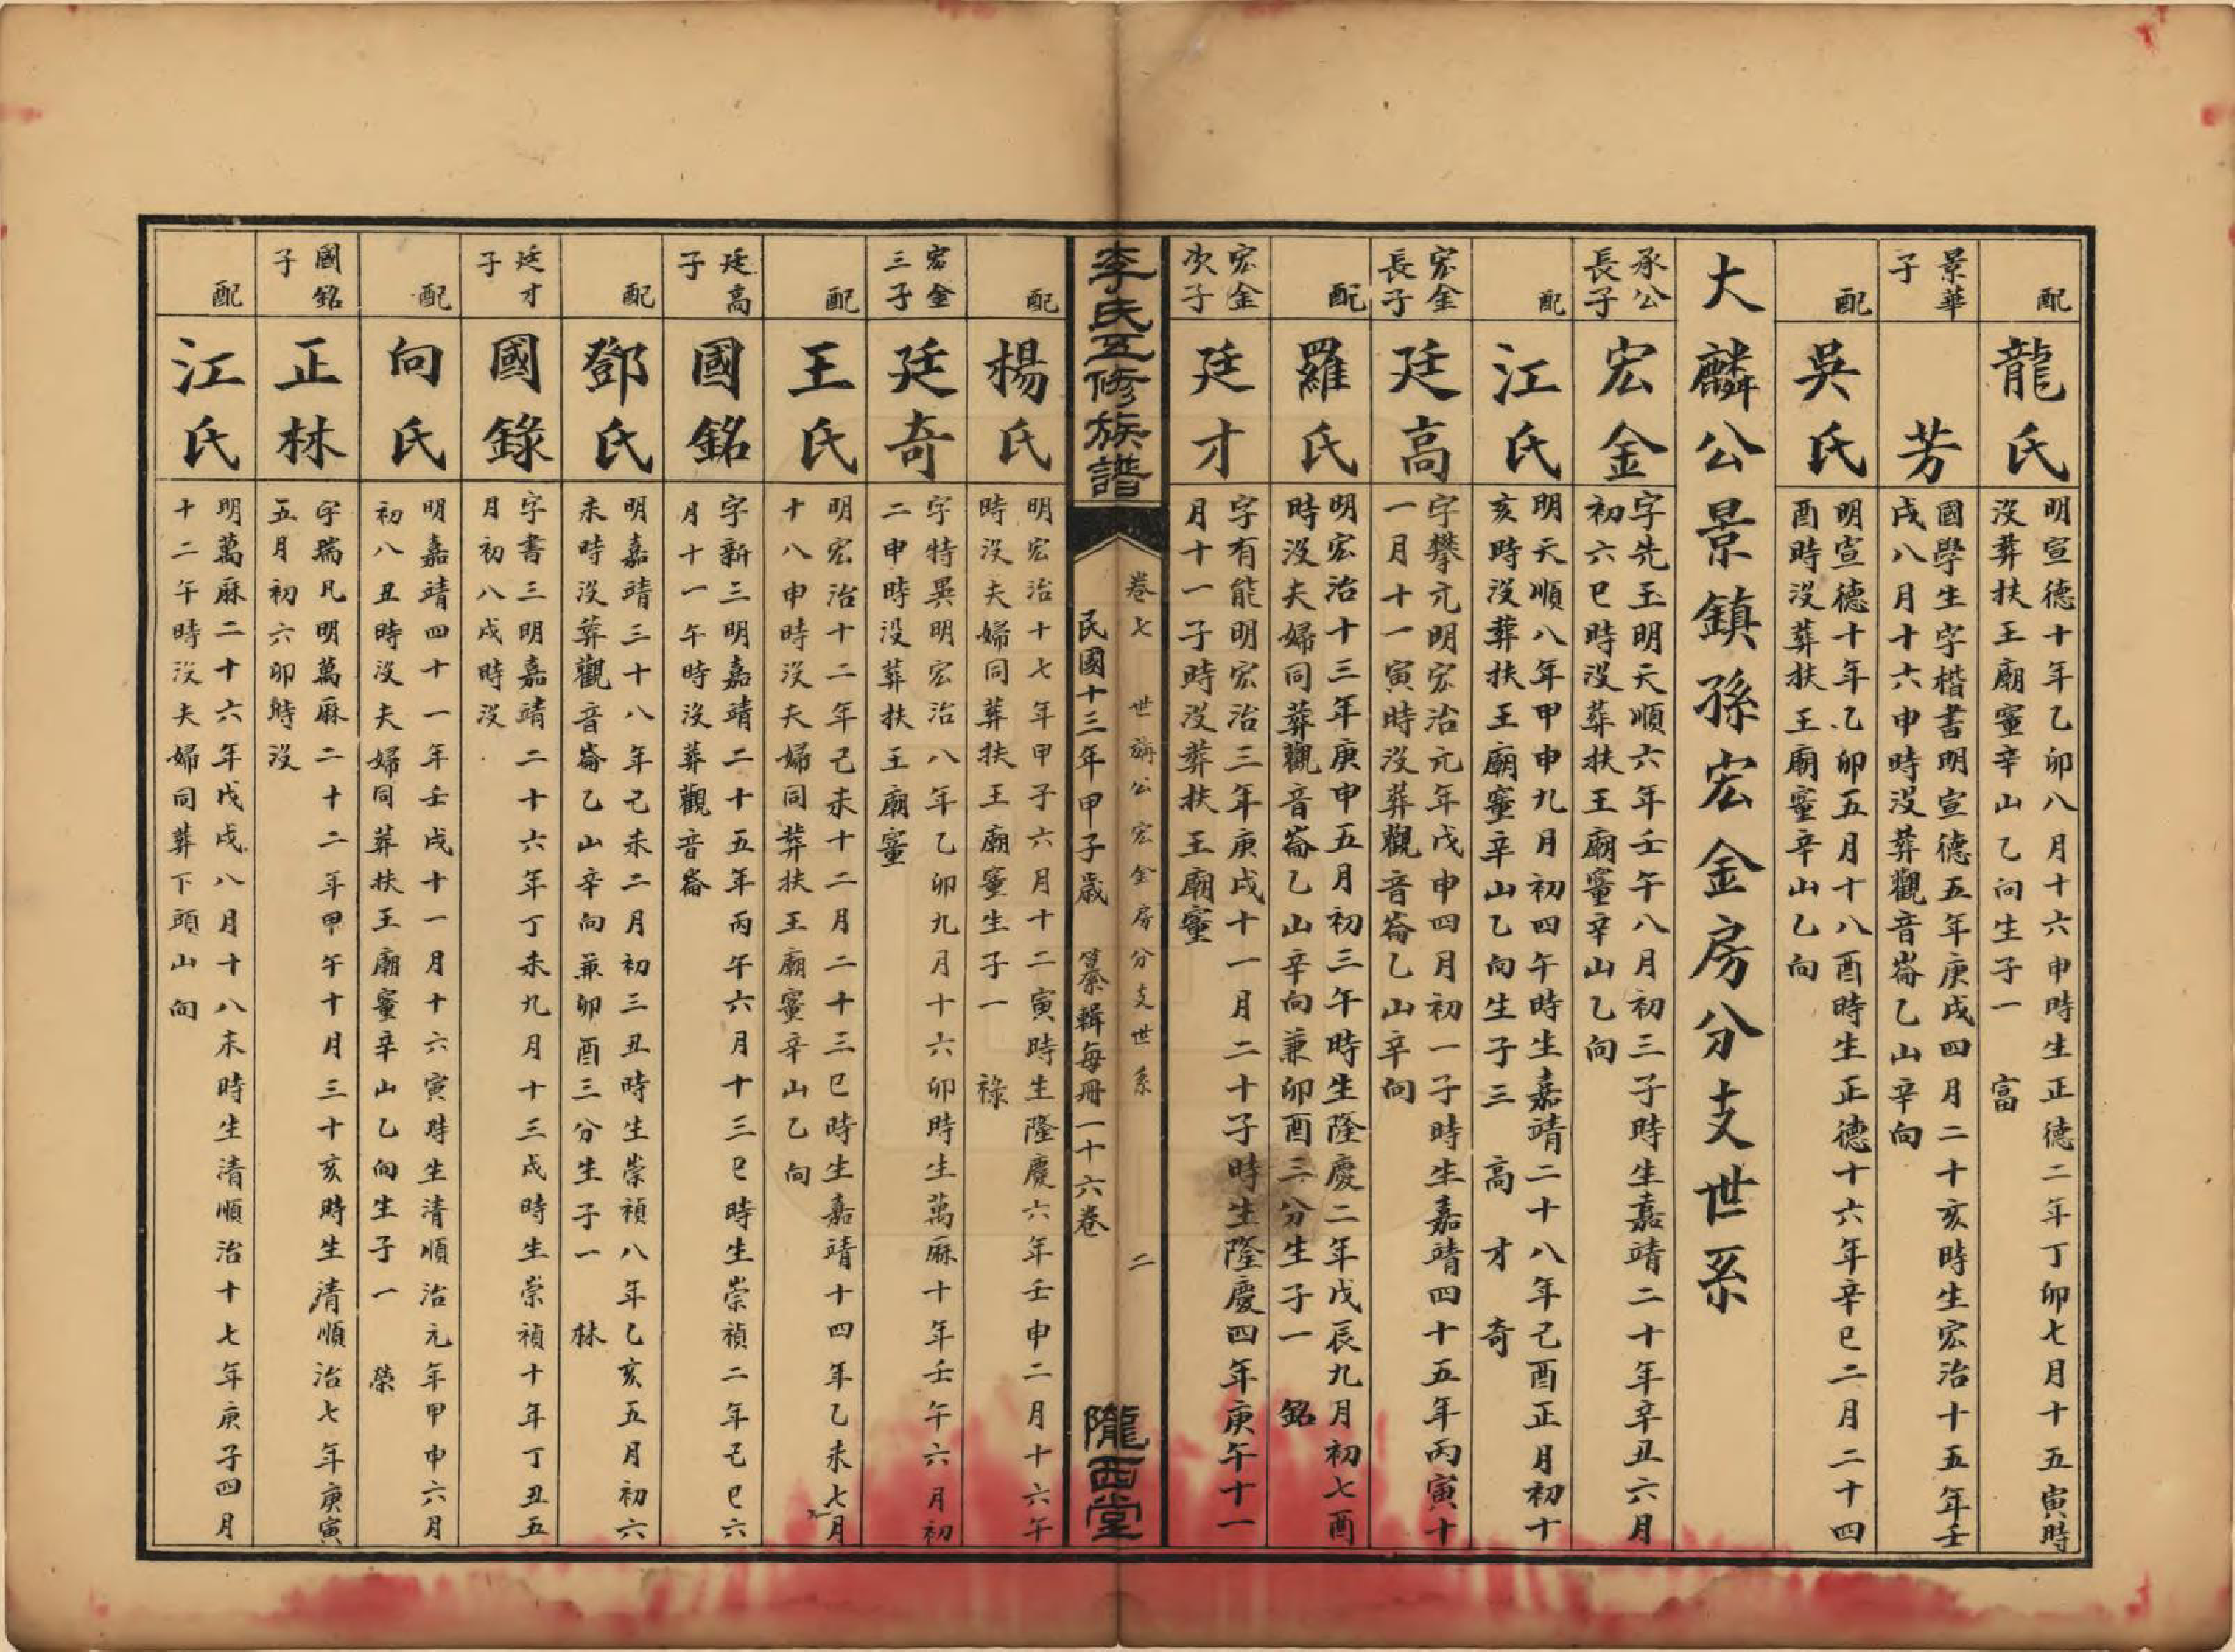 配
龍氏
明宣德十年乙卯八月十六申時生正德二年丁卯七月十五寅時
沒葬扶王廟𡩋辛山乙向生子一 富
景華
子
芳
國學生字楷書明宣德五年庚戌四月二十亥時生宏治十五年壬
戌八月十六申時沒葬觀音崙乙山辛向
配
吳氏
明宣德十年乙卯五月十八酉時生正德十六年辛巳二月二十四
酉時沒葬扶王廟𡩋辛山乙向
大麟公景鎮孫宏金房分支世系
承公
長子
宏金
字先玉明天順六年壬午八月初三子時生嘉靖二十年辛丑六月
初六巳時沒葬扶王廟𡩋辛山乙向
配
江氏
明天順八年甲申九月初四午時生嘉靖二十八年己酉正月初十
亥時沒葬扶王廟𡩋辛山乙向生子三 高 才 奇
宏金
長子
廷高
字攀元明宏治元年戊申四月初一子時生嘉靖四十五年丙寅十
一月十一寅時沒葬觀音崙乙山辛向
配
羅氏
明宏治十三年庚申五月初三午時生隆慶二年戊辰九月初七酉
時沒夫婦同葬觀音崙乙山辛向兼卯酉三分生子一 銘
宏金
次子
廷才
字有能明宏治三年庚戌十一月二十子時生隆慶四年庚午十一
月十一子時沒葬扶王廟𡩋
李氏五修族譜
卷七 世旃公宏金房分支世系 二
民國十三年甲子歲 纂輯每冊一十六卷
隴西堂
配
楊氏
明宏治十七年甲子六月十二寅時生隆慶六年壬申二月十六午
時沒夫婦同葬扶王廟𡩋生子一 祿
宏金
三子
廷奇
字特異明宏治八年乙卯九月十六卯時生萬厤十年壬午六月初
二申時沒葬扶王廟𡩋
配
王氏
明宏治十二年己未十二月二十三巳時生嘉靖十四年乙未七月
十八申時沒夫婦同葬扶王廟𡩋辛山乙向
廷高
子
國銘
字新三明嘉靖二十五年丙午六月十三巳時生崇禎二年己巳六
月十一午時沒葬觀音崙
配
鄧氏
明嘉靖三十八年己未二月初三丑時生崇禎八年乙亥五月初六
未時沒葬觀音崙乙山辛向兼卯酉三分生子一 林
廷才
子
國錄
字書三明嘉靖二十六年丁未九月十三戌時生崇禎十年丁丑五
月初八戌時沒
配
向氏
明嘉靖四十一年壬戌十一月十六寅時生清順治元年甲申六月
初八丑時沒夫婦同葬扶王廟𡩋辛山乙向生子一 榮
國銘
子
正林
字瑞凡明萬厤二十二年甲午十月三十亥時生清順治七年庚寅
五月初六卯時沒
配
江氏
明萬厤二十六年戊戌八月十八未時生清順治十七年庚子四月
十二午時沒夫婦同葬下頭山向